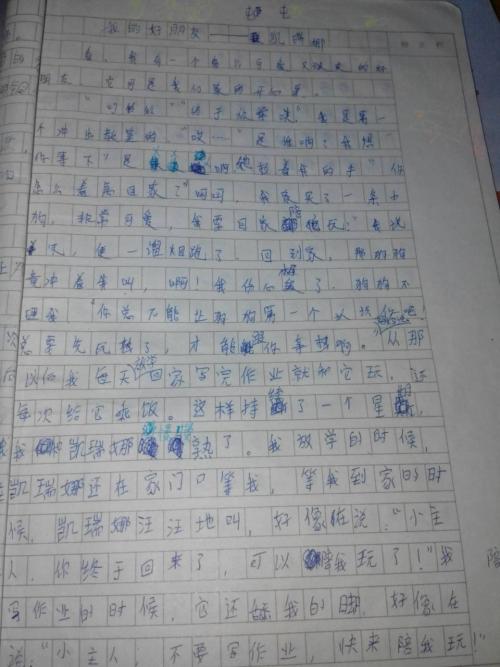 我的好朋友——凯瑞娜
看，我有一个
朋友，它可是我们家的开心果。
"叮铃铃""终于放学咦"我是第一
个冲出教室的"哎…"是谁啊？我想
你等下"是 啊他拉着我的手"你
怎么着急回家？"呵呵，我家买了一条小
狗，非常可爱，我要回家陪他玩？"我说
着关，便一溜烟跑了。回到家，那狗狗
竟冲着我叫，啊！我伤心极了，狗狗不
理我"你总不能让狗狗第一个 你吧
总要先玩熟了，才能跟你亲热啊。"从那
以后我每天放学回家写完作业就和它玩，还
每次给它乖饭。这样持续了一个星期，
我和凯瑞娜 熟了。我放学的时候，
凯瑞娜还在家门口等我，等我到家的时
候，凯瑞娜汪汪地叫，好像在说："小主
人，你终于回来了，可以陪我玩了！"我
写作业的时候，它还舔我的脚，好像在
说："小主人，不要写作业，快来陪我玩！"
陪